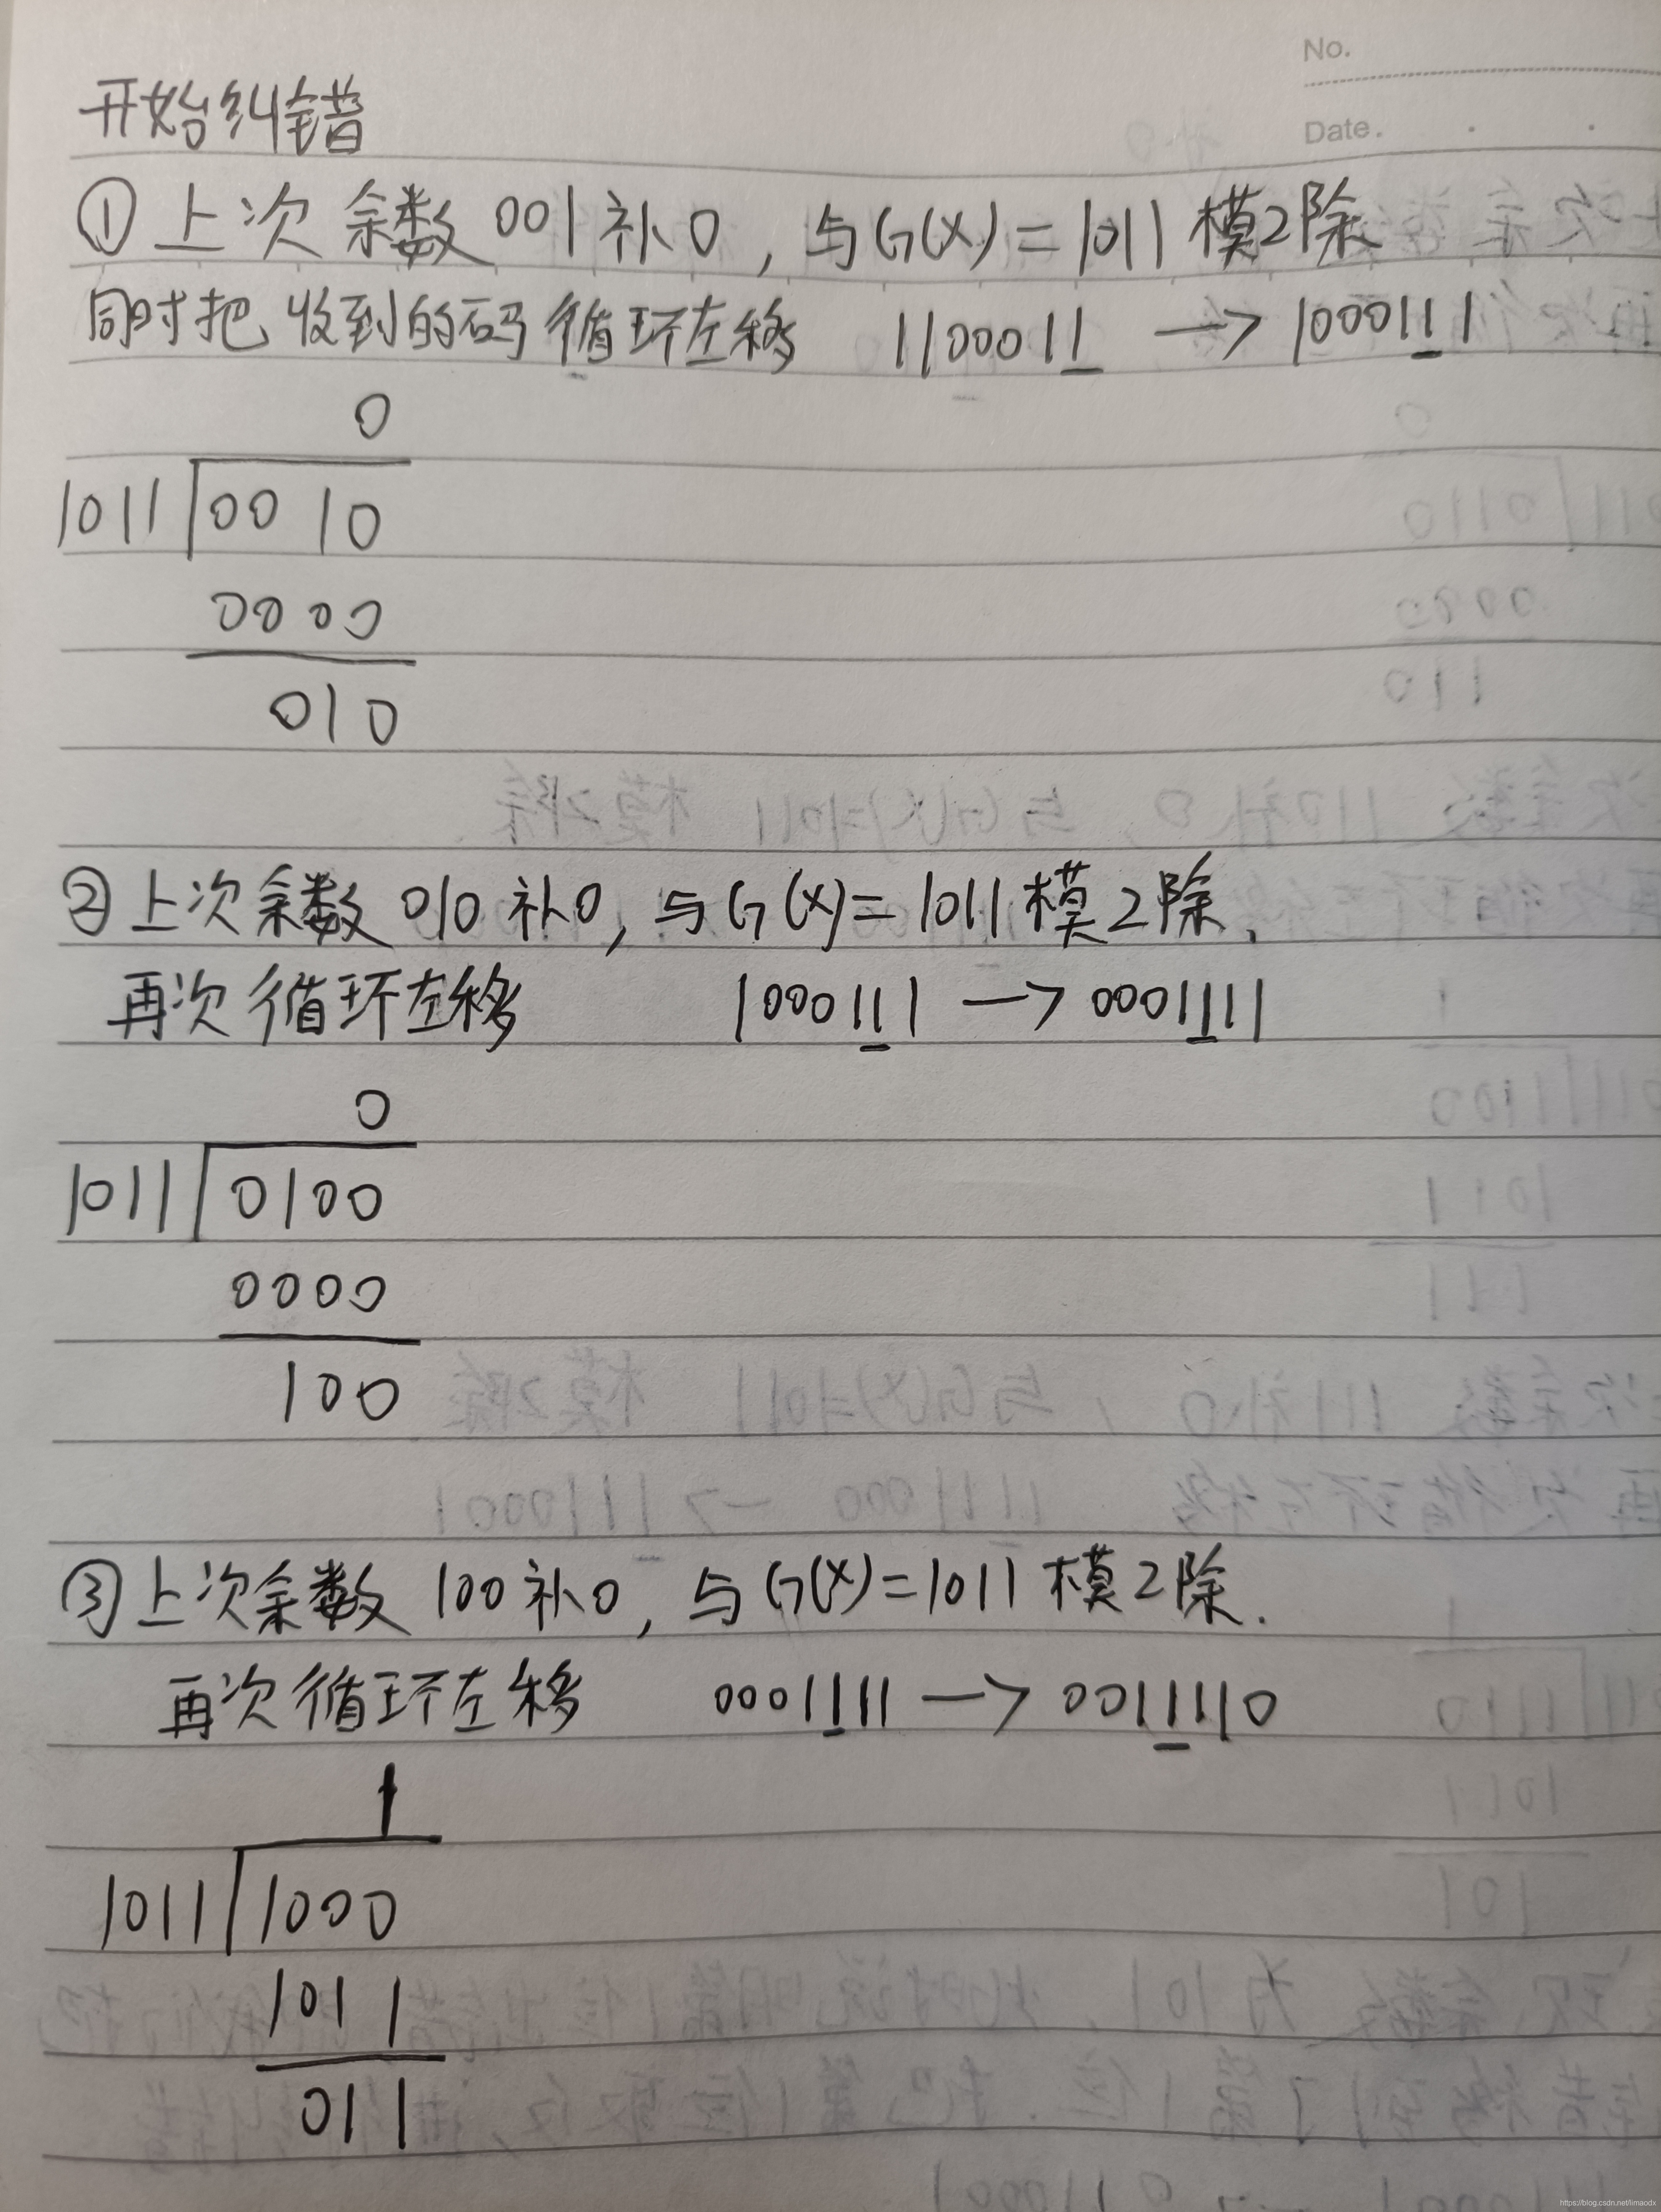 No.
Date.
开始纠错
①上次余数001补0，与G(X)=1011模2除
同时把收到的码循环左移 1100011 → 1000111
0
1011 0010
0000
010
②上次余数010补0，与G(X)=1011模2除.
再次循环左移 1000111 → 0001111
0
1011 0100
0000
100
③上次余数100补0，与G(X)=1011模2除.
再次循环左移 0001111 → 0011110
1
1011 1000
1011
011
https://blog.csdn.net/limaodx